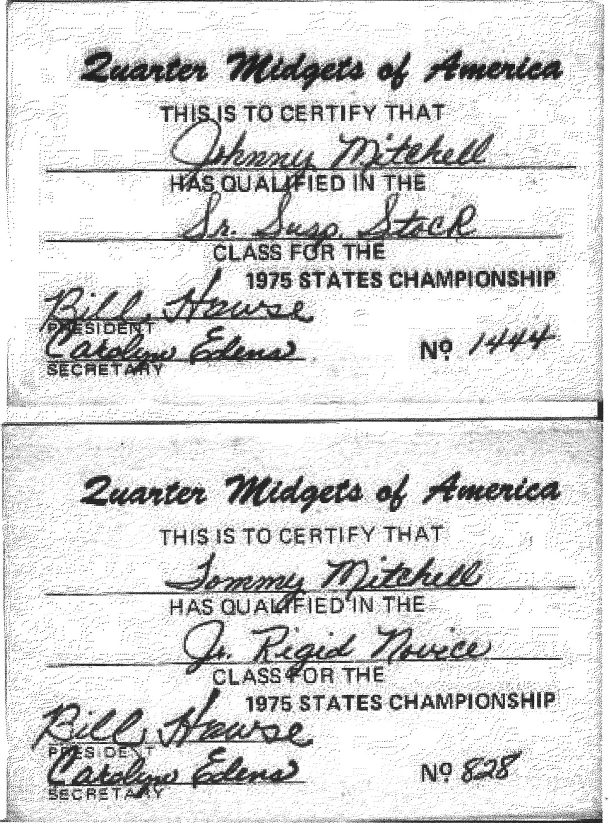 Quarter Midgets of America
THIS IS TO CERTIFY THAT
Johnny Mitchell
HAS QUALIFIED IN THE
Sr. Susp. Stock
CLASS FOR THE
1975 STATES CHAMPIONSHIP
Bill Hawse
PRESIDENT
Carolyn Edens
SECRETARY
Nº 1444
Quarter Midgets of America
THIS IS TO CERTIFY THAT
Tommy Mitchell
HAS QUALIFIED IN THE
Jr. Rigid Novice
CLASS FOR THE
1975 STATES CHAMPIONSHIP
Bill Hawse
PRESIDENT
Carolyn Edens
SECRETARY
Nº 828